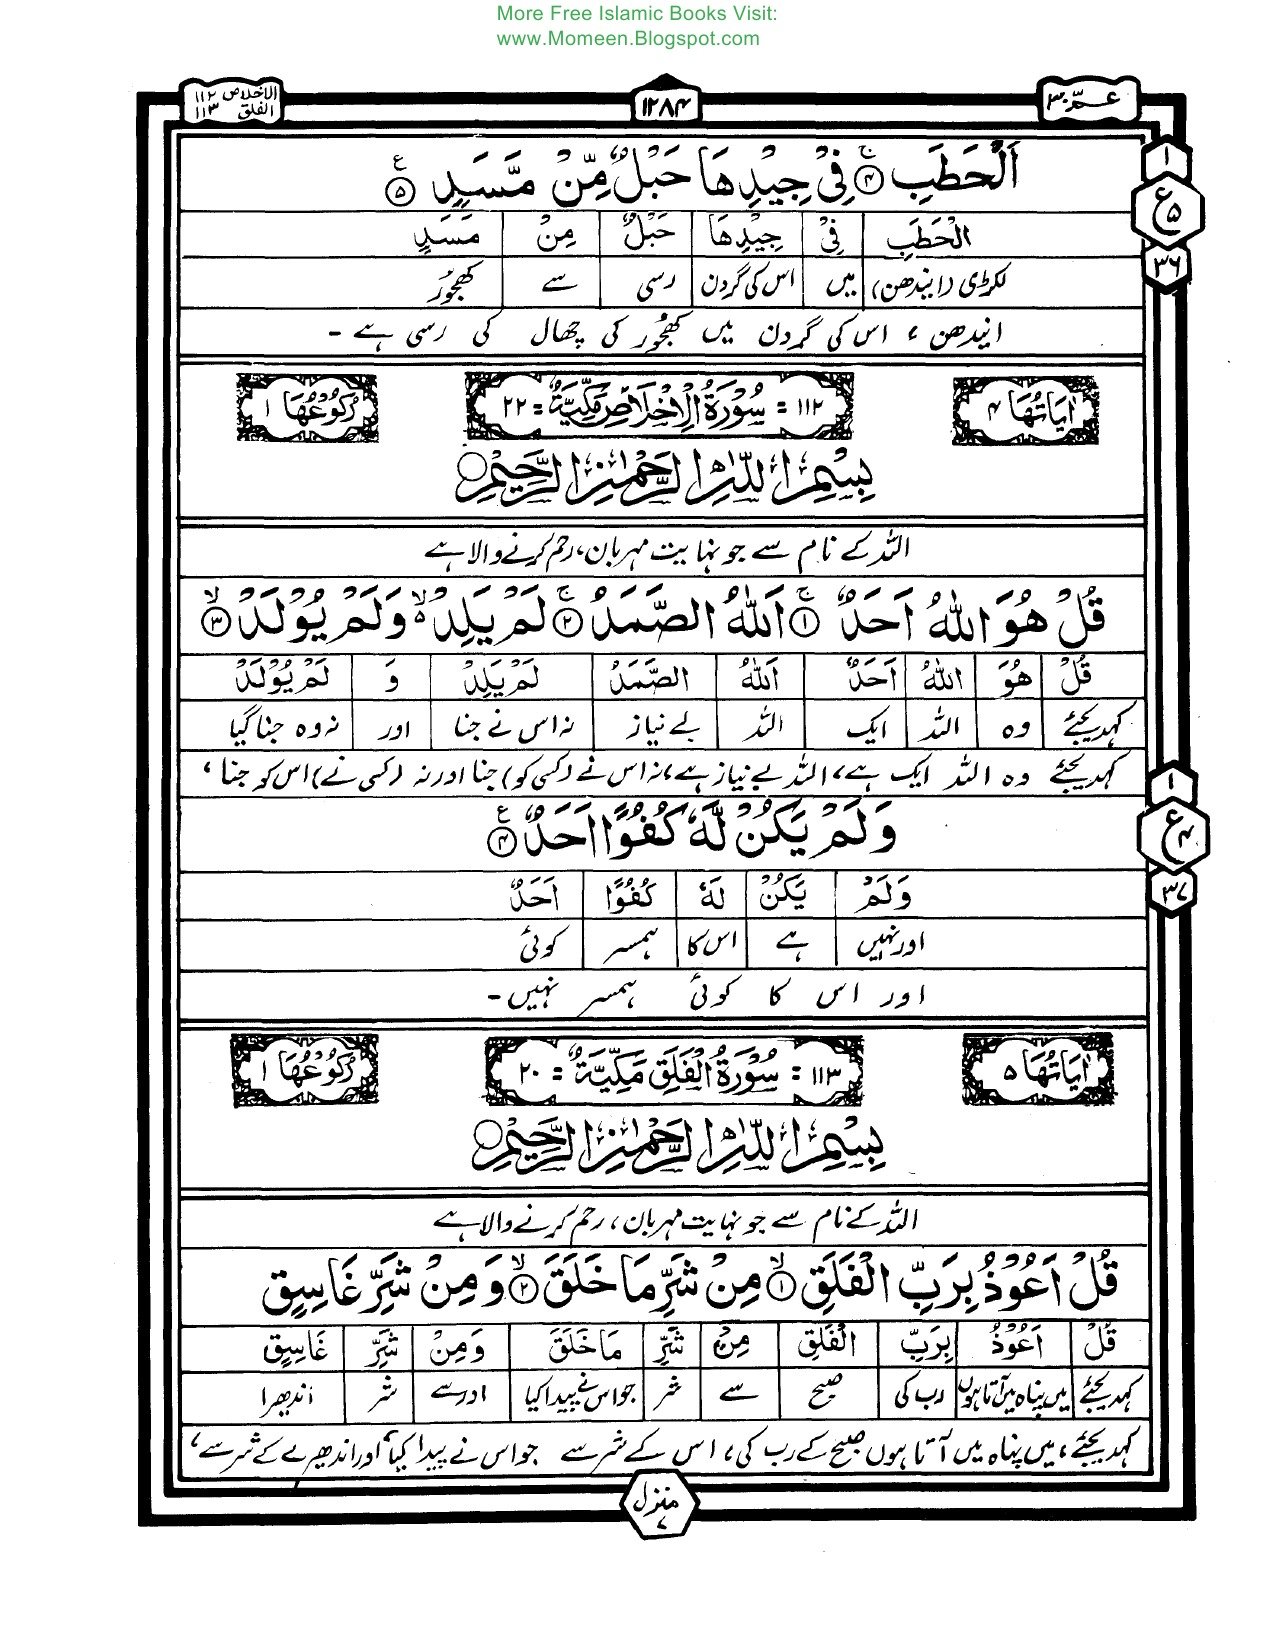 More Free Islamic Books Visit:
www.Momeen.Blogspot.com
عـمّ ٣٠
١٢٨۴
الاخلاص ١١٢
الفلق ١١٣
اَلْحَطَبِ ۚ﴿۴﴾ فِیْ جِیْدِهَا حَبْلٌ مِّنْ مَّسَدٍ ﴿۵﴾ ع
١
ع ۵
٣٦
الْحَطَبِ فِیْ جِیْدِهَا حَبْلٌ مِنْ مَسَدٍ
لکڑی (ایندھن) میں اس کی گردن رسی سے کھجور
ایندھن ، اس کی گردن میں کھجور کی چھال کی رسی ہے ۔
اٰیَاتُهَا ۴
١١٢ = سُوْرَةُ الْاِخْلَاصِ مَکِّیَّةٌ = ٢٢
رُکُوْعُهَا ١
بِسْمِ اللّٰهِ الرَّحْمٰنِ الرَّحِیْمِ
اللہ کے نام سے جو نہایت مہربان، رحم کرنے والا ہے
قُلْ هُوَ اللّٰهُ اَحَدٌ ۚ﴿١﴾ اَللّٰهُ الصَّمَدُ ۚ﴿٢﴾ لَمْ یَلِدْ ۙ۬ وَلَمْ یُوْلَدْ ۙ﴿٣﴾
قُلْ هُوَ اللّٰهُ اَحَدٌ اَللّٰهُ الصَّمَدُ لَمْ یَلِدْ وَ لَمْ یُوْلَدْ
کہدیجئے وہ اللہ ایک اللہ بے نیاز نہ اس نے جنا اور نہ وہ جنا گیا
کہدیجئے وہ اللہ ایک ہے، اللہ بے نیاز ہے، نہ اس نے (کسی کو) جنا اور نہ (کسی نے) اس کو جنا ،
١
وَلَمْ یَکُنْ لَّهٗ کُفُوًا اَحَدٌ ﴿۴﴾ ع
ع ۴
٣٧
وَلَمْ یَکُنْ لَهٗ کُفُوًا اَحَدٌ
اور نہیں ہے اس کا ہمسر کوئی
اور اس کا کوئی ہمسر نہیں ۔
اٰیَاتُهَا ۵
١١٣ = سُوْرَةُ الْفَلَقِ مَکِّیَّةٌ = ٢٠
رُکُوْعُهَا ١
بِسْمِ اللّٰهِ الرَّحْمٰنِ الرَّحِیْمِ
اللہ کے نام سے جو نہایت مہربان ، رحم کرنے والا ہے
قُلْ اَعُوْذُ بِرَبِّ الْفَلَقِ ۙ﴿١﴾ مِنْ شَرِّ مَا خَلَقَ ۙ﴿٢﴾ وَمِنْ شَرِّ غَاسِقٍ
قُلْ اَعُوْذُ بِرَبِّ الْفَلَقِ مِنْ شَرِّ مَا خَلَقَ وَمِنْ شَرِّ غَاسِقٍ
کہدیجئے میں پناہ میں آتا ہوں رب کی صبح سے شر جو اس نے پیدا کیا اور سے شر اندھیرا
کہدیجئے ، میں پناہ میں آتا ہوں صبح کے رب کی ، اس کے شر سے جو اس نے پیدا کیا ، اور اندھیرے کے شر سے ،
منزل ٧